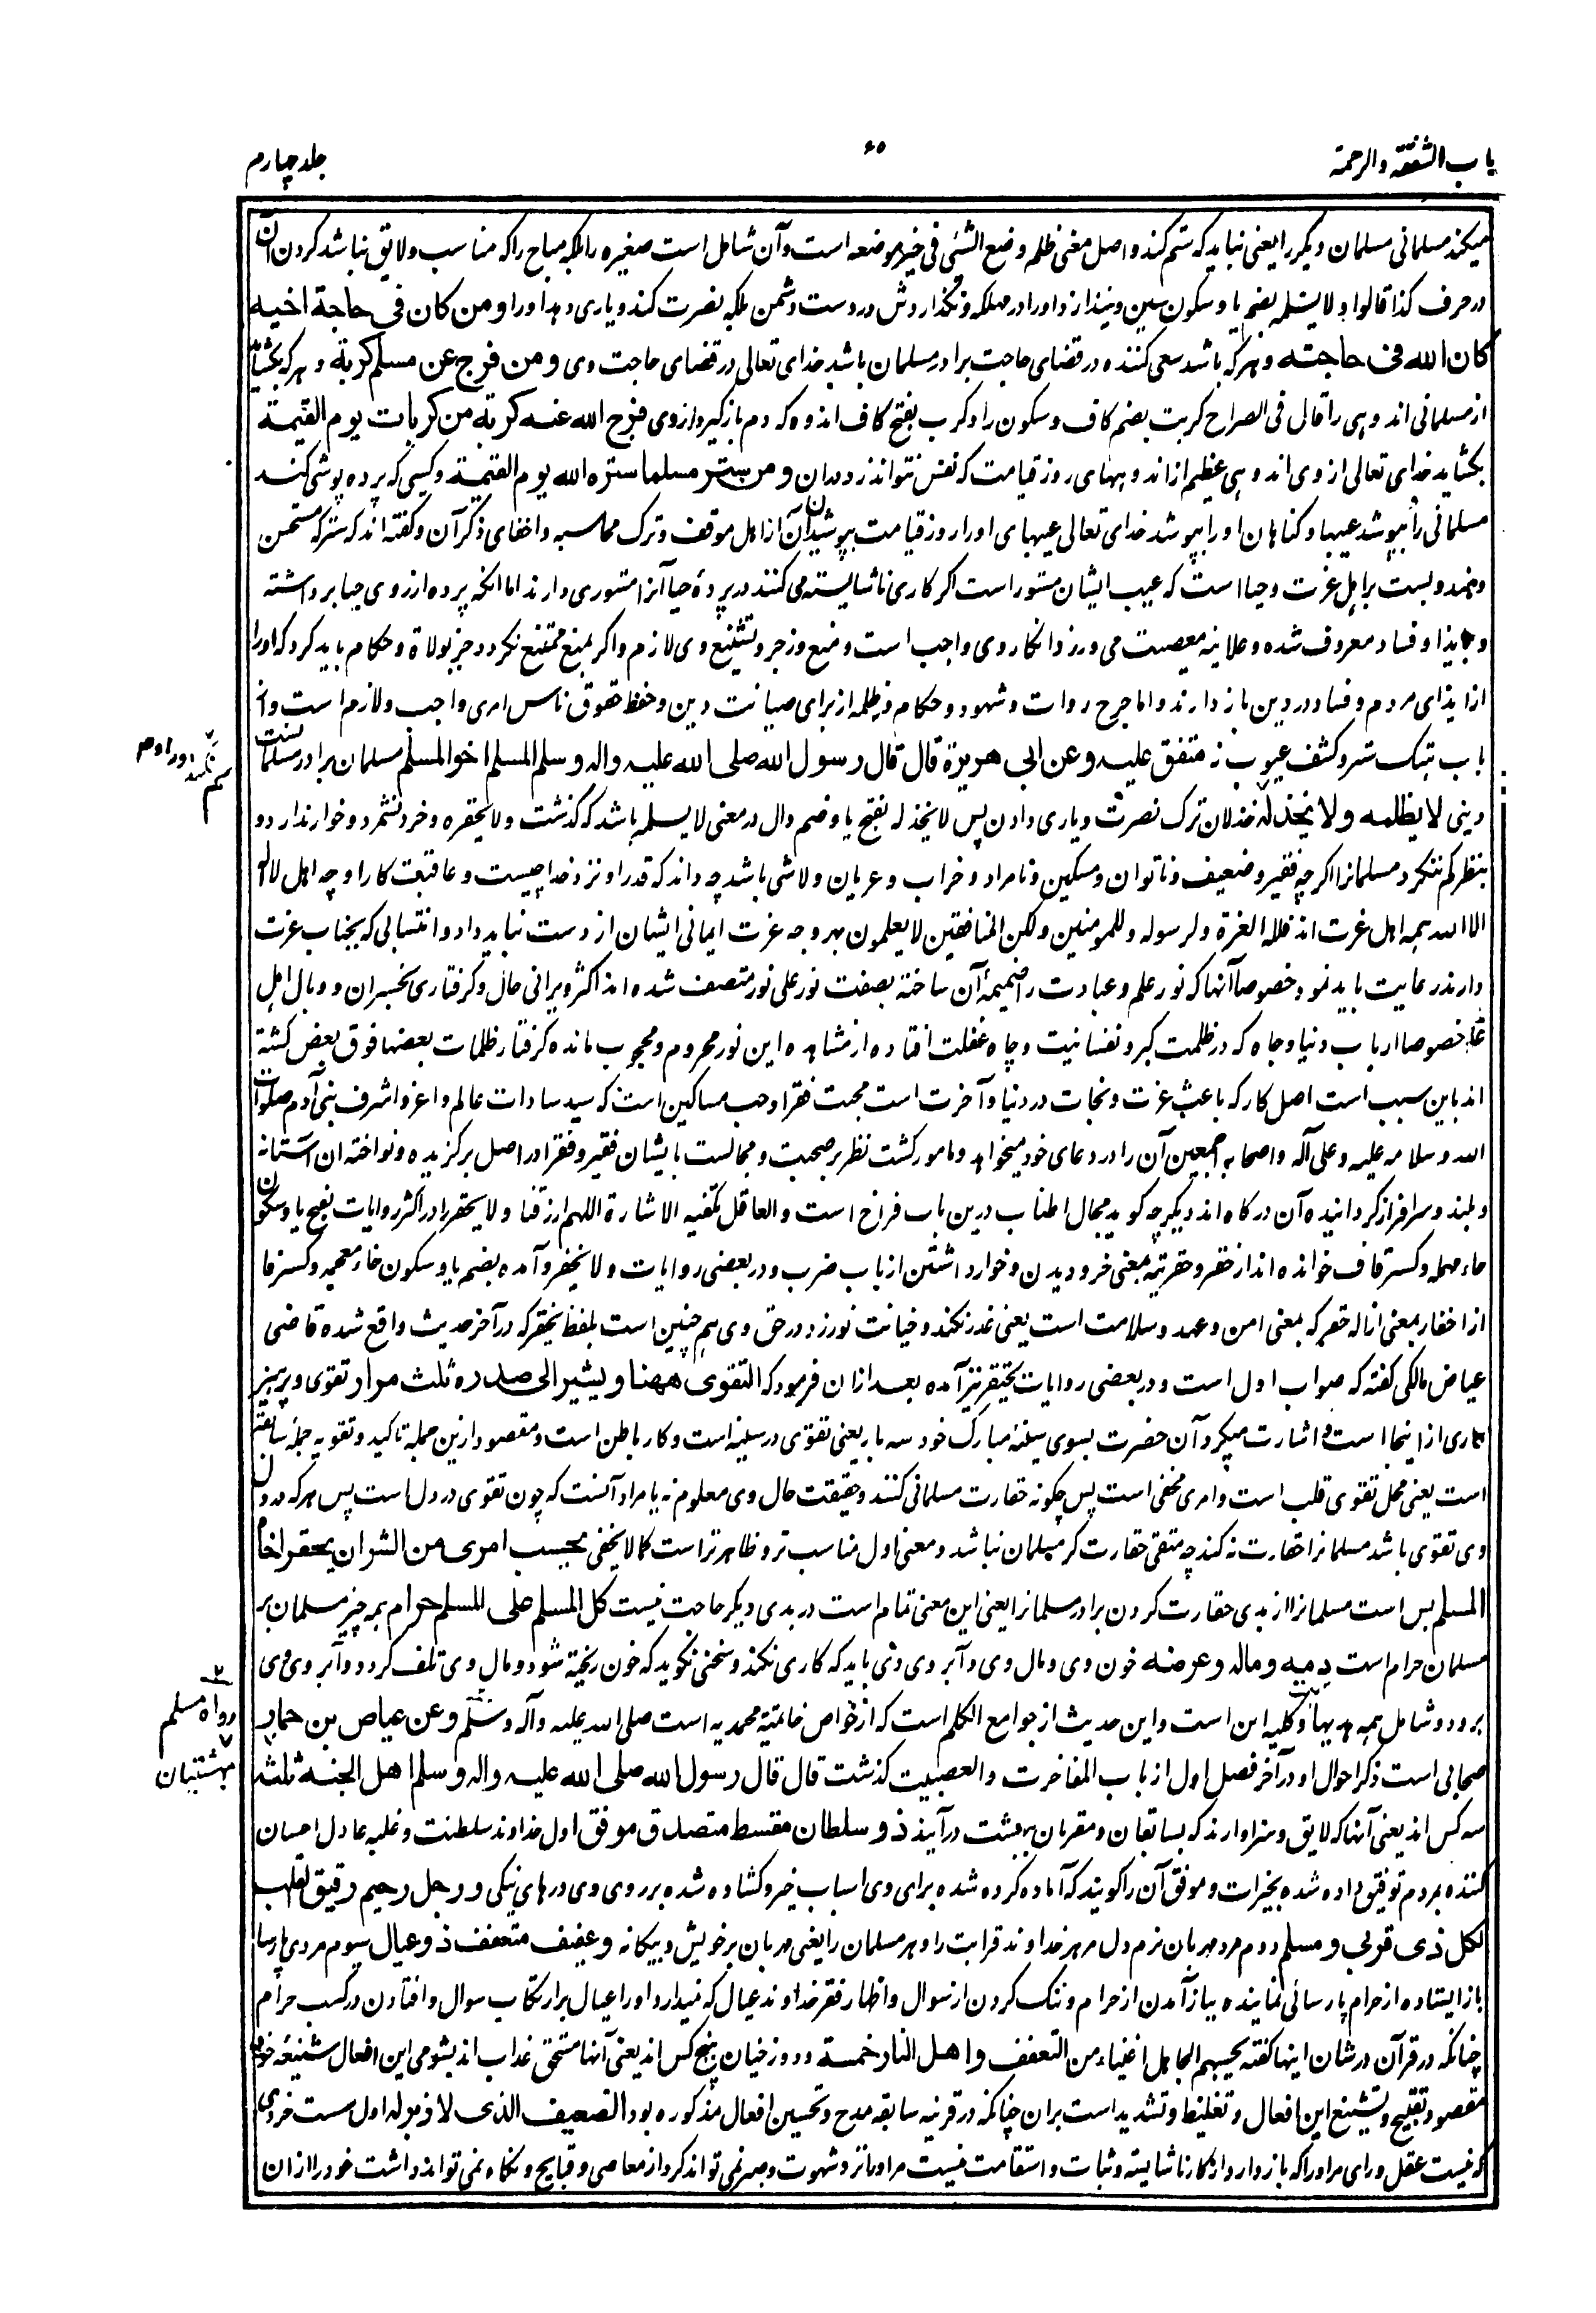 باب الشفقة والرحمة
۶۵
جلد چهارم
میکند مسلمانی مسلمان دیگر را یعنی نباید که ستم کند و اصل معنی ظلم وضع الشئ فی غیر موضعه است و آن شامل است صغیره را بلکه مباح را که مناسب و لایق نباشد کردن آن
در حرف کذا قالوا ولا یسلمه بضم یا و سکون سین و نیندازد او را در مهلکه و نگذارد وش در دست دشمن بلکه نصرت کند و یاری دهد او را و من کان فی حاجة اخیه
کان الله فی حاجته و هر که باشد سعی کننده در قضای حاجت برادر مسلمان باشد خدای تعالی در قضای حاجت وی و من فرج عن مسلم کربة و هر که بکشاید
از مسلمانی اندوهی را قال فی الصراح کربت بضم کاف و سکون را و کرب بفتح کاف اندوه که دم باز گیرد از وی فرج الله عنه کربة من کربات یوم القیمة
بکشاید خدای تعالی از وی اندوهی عظیم از اندوههای روز قیامت که نفس نتواند زد دران و من ستر مسلما ستره الله یوم القیمة و کسی که پرده پوشی کند
مسلمانی را بپوشد عیبها و گناهان او را بپوشد خدای تعالی عیبهای او را روز قیامت بپوشیدن آن از اهل موقف و ترک محاسبه و اخفای ذکر آن و گفته اند که ستر که مستحسن
و مندوبست بر اهل عزت و حیا است که عیب ایشان مستور است اگر کاری ناشایسته می کنند در پردهٔ حیا آنرا مستوری دارند اما آنکه پرده از روی حیا برداشته
و بایذا و فساد معروف شده و علانیه معصیت می ورزد انکار وی واجب است و منع و زجر و تشنیع وی لازم و اگر بمنع ممتنع نکردد جز بولاة و حکام باید کرد که او را
از ایذای مردم و فساد در دین باز دارند و اما جرح روات و شهود و حکام ظلمه از برای صیانت دین و حفظ حقوق ناس امری واجب و لازم است و از
باب هتک ستر و کشف عیوب نه متفق علیه و عن ابی هریرة قال قال رسول الله صلی الله علیه واله وسلم المسلم اخو المسلم مسلمان برادر مسلمانست
دینی لا یظلمه ولا یخذله خذلان ترک نصرت و یاری دادن پس لا یخذله بفتح یا و ضم دال در معنی لا یسلمه باشد که گذشت ولا یحقره و خرد نشمرد و خوار ندارد و
بنظر کم ننگرد مسلمانرا اگرچه فقیر و ضعیف و ناتوان و مسکین و نامراد و خراب و عریان و لاشی باشد چه داند که قدر او نزد خدا چیست و عاقبت کار او چه اهل لا اله
الا الله همه اهل عزت اند فلله العزة ولرسوله وللمومنین ولکن المنافقین لا یعلمون بهر وجه عزت ایمانی ایشان از دست نباید داد و انتسابی که بجناب عزت
دارند رعایت باید نمود خصوصا آنها که نور علم و عبادت را ضمیمهٔ آن ساخته بصفت نور علی نور متصف شده اند اکثر ویرانی حال و گرفتاری بخسران و وبال اهل
خصوصا ارباب دنیا و جاه که در ظلمت کبر و نفسانیت و چاه غفلت افتاده از مشاهده این نور محروم و محجوب مانده گرفتار ظلمات بعضها فوق بعض گشته
اند باین سبب است اصل کار که باعث عزت و نجات در دنیا و آخرت است محبت فقرا و حب مساکین است که سید سادات عالم و اعز و اشرف بنی آدم صلوات
الله وسلامه علیه وعلی آله واصحابه اجمعین آن را در دعای خود میخواهد و مامور گشت نظر بر صحبت و مجالست بایشان فقیر و فقرا در اصل برگزیده و نواخته ان آستانه
و بلند و سرافراز گردانیده آن درگاه اند دیگر چه گوید مجال اطناب درین باب فراخ است والعاقل تکفیه الاشارة اللهم ارزقنا ولا یحقره را در اکثر روایات بفتح یا و سکون
حاء مهمله و کسر قاف خوانده اند از حقر و حقریة بمعنی خرد دیدن و خوار داشتن از باب ضرب و در بعضی روایات ولا یخفره آمده بضم یا و سکون خاء معجمه و کسر فا
از اخفار بمعنی ازاله خفر که بمعنی امن و عهد و سلامت است یعنی غدر نکند و خیانت نورزد در حق وی هم چنین است بلفظ یحقر که در آخر حدیث واقع شده قاضی
عیاض مالکی گفته که صواب اول است و در بعضی روایات یحتقر نیز آمده بعد ازان فرمود که التقوی ههنا ویشیر الی صدره ثلث مرار تقوی و پرهیز
گاری از اینجا است و اشارت میکرد آن حضرت بسوی سینهٔ مبارک خود سه بار یعنی تقوی در سینه است و کار باطن است و مقصود ازین جمله تاکید و تقویه جمله سابقه
است یعنی محل تقوی قلب است و امری مخفی است پس چگونه حقارت مسلمانی کنند و حقیقت حال وی معلوم نه یا مراد آنست که چون تقوی در دل است پس هر که در دل
وی تقوی باشد مسلمانرا حقارت نه کند چه متقی حقارت گر مسلمان نباشد و معنی اول مناسب تر و ظاهر تر است کما لا یخفی بحسب امرئ من الشر ان یحقر اخاه
المسلم بس است مسلمانرا از بدی حقارت کردن برادر مسلمانرا یعنی این معنی تمام است در بدی دیگر حاجت نیست کل المسلم علی المسلم حرام همه چیز مسلمان بر
مسلمان حرام است دمه وماله وعرضه خون وی و مال وی و آبروی وی باید که کاری نکند و سخنی نگوید که خون ریخته شود و مال وی تلف گردد و آبروی وی
برود و شامل همه بدیها و کلیه این است و این حدیث از جوامع الکلم است که از خواص خاتمیة محمدیه است صلی الله علیه وآله وسلم وعن عیاض بن حمار
صحابی است ذکر احوال او در آخر فصل اول از باب المفاخرت والعصبیت گذشت قال قال رسول الله صلی الله علیه واله وسلم اهل الجنة ثلثة
سه کس اند یعنی آنها که لایق و سزاوارند که بسابقان و مقربان ببهشت درآیند ذو سلطان مقسط متصدق موفق اول خداوند سلطنت و غلبه عادل احسان
کننده بمردم توفیق داده شده بخیرات و موفق آن را گویند که آماده کرده شده برای وی اسباب خیر و کشاده شده بر روی وی درهای نیکی و رجل رحیم رقیق القلب
لکل ذی قربی و مسلم دوم مرد مهربان نرم دل مر هر خداوند قرابت را و هر مسلمان را یعنی مهربان بر خویش و بیگانه و عفیف متعفف ذو عیال سیوم مردی پارسا
باز ایستاده از حرام پارسائی نماینده بباز آمدن از حرام و ننگ کردن از سوال و اظهار فقر خداوند عیال که نمیدارد او را عیال بر ارتکاب سوال و افتادن در کسب حرام
چنانکه در قرآن در شان اینها گفته یحسبهم الجاهل اغنیاء من التعفف و اهل النار خمسة و دوزخیان پنج کس اند یعنی آنها مستحق عذاب اند بشومی این افعال شنیعه خود
مقصود تقبیح و تشنیع این افعال و تغلیظ و تشدید است بران چنانکه در قرینه سابقه مدح و تحسین افعال مذکوره بود الضعیف الذی لا زبر له اول سست خردی
که نیست عقل و رای مر او را که باز دارد از کار ناشایسته و ثبات و استقامت نیست مر او را نزد شهوت و صبر نمی تواند کرد از معاصی و قبایح و نگاه نمی تواند داشت خود را ازان
ستم نکند او را و هم
رواه مسلم
بهشتیان